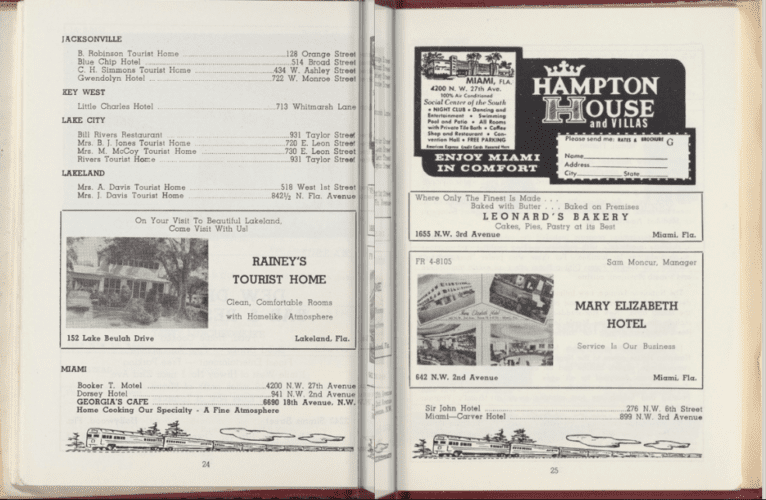 JACKSONVILLE
B. Robinson Tourist Home 128 Orange Street
Blue Chip Hotel 514 Broad Street
C. H. Simmons Tourist Home 434 W. Ashley Street
Gwendolyn Hotel 722 W. Monroe Street
KEY WEST
Little Charles Hotel 713 Whitmarsh Lane
LAKE CITY
Bill Rivers Restaurant 931 Taylor Street
Mrs. B. J. Jones Tourist Home 720 E. Leon Street
Mrs. M. McCoy Tourist Home 730 E. Leon Street
Rivers Tourist Home 931 Taylor Street
LAKELAND
Mrs. A. Davis Tourist Home 518 West 1st Street
Mrs. J. Davis Tourist Home 842½ N. Fla. Avenue
On Your Visit To Beautiful Lakeland,
Come Visit With Us!
RAINEY'S
TOURIST HOME
Clean, Comfortable Rooms
with Homelike Atmosphere
152 Lake Beulah Drive Lakeland, Fla.
MIAMI
Booker T. Motel 4200 N.W. 27th Avenue
Dorsey Hotel 941 N.W. 2nd Avenue
GEORGIA'S CAFE 6690 18th Avenue, N.W.
Home Cooking Our Specialty - A Fine Atmosphere
24
MIAMI, FLA.
4200 N. W. 27th Ave.
100% Air Conditioned
Social Center of the South
• NIGHT CLUB • Dancing and
Entertainment • Swimming
Pool and Patio • All Rooms
with Private Tile Bath • Coffee
Shop and Restaurant • Con-
vention Hall • FREE PARKING
American Express Credit Cards Honored Here
ENJOY MIAMI
IN COMFORT
HAMPTON
HOUSE
and VILLAS
Please send me: RATES & BROCHURE G
Name
Address
City State
Where Only The Finest Is Made . . .
Baked with Butter . . . Baked on Premises
LEONARD'S BAKERY
Cakes, Pies, Pastry at its Best
1655 N.W. 3rd Avenue Miami, Fla.
FR 4-8105 Sam Moncur, Manager
MARY ELIZABETH
HOTEL
Service Is Our Business
642 N.W. 2nd Avenue Miami, Fla.
Sir John Hotel 276 N.W. 6th Street
Miami—Carver Hotel 899 N.W. 3rd Avenue
25